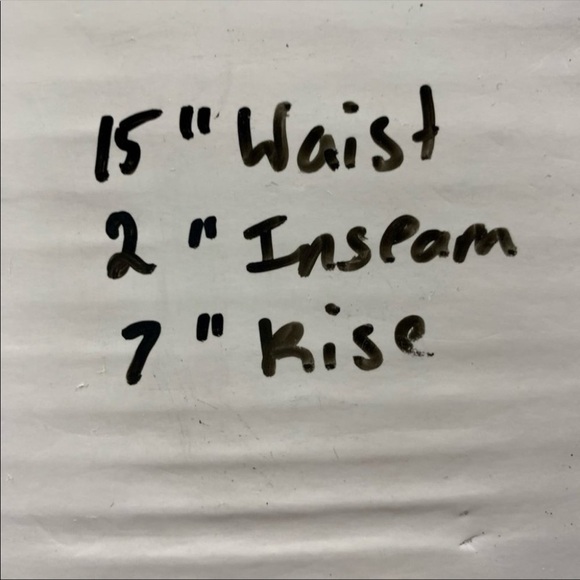 15" Waist
2" Inseam
7" Rise